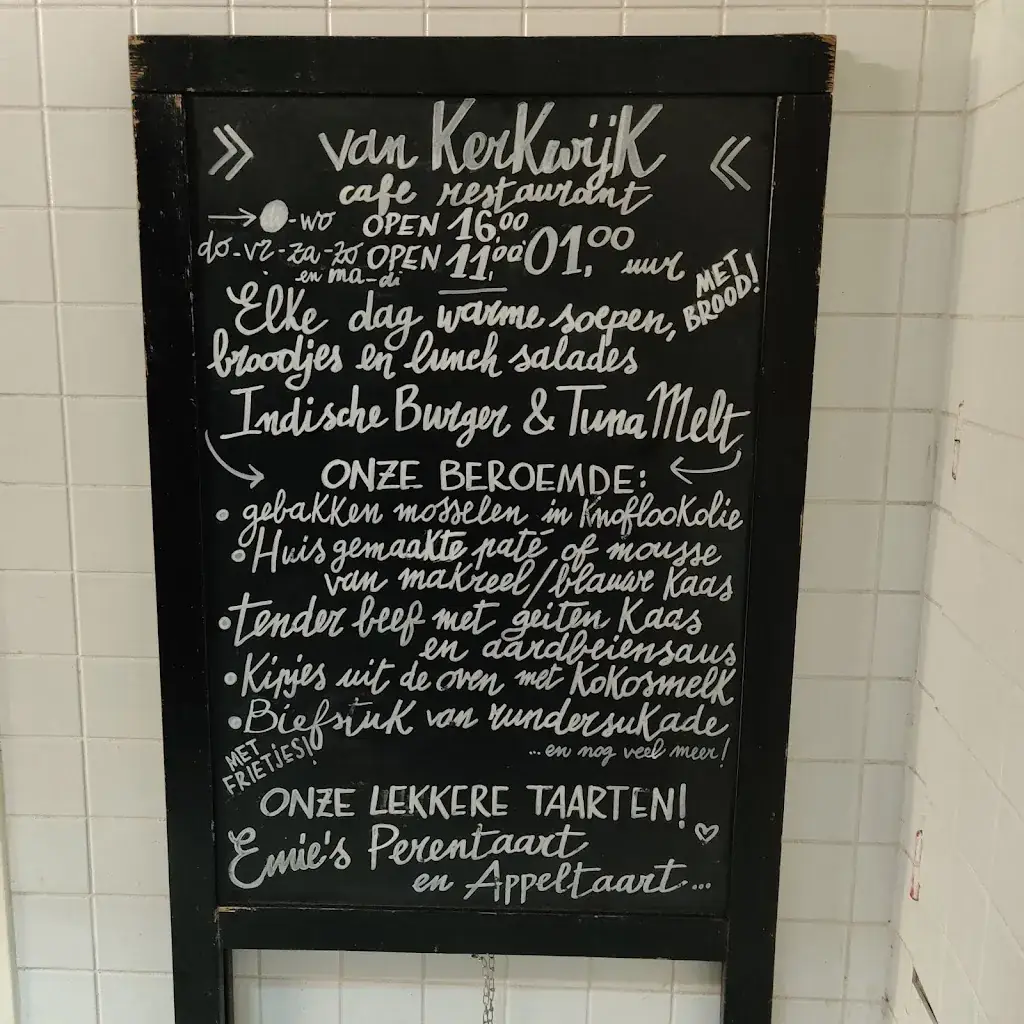 van Kerkwijk
cafe restaurant
-wo OPEN 16,00
do-vr-za-zo OPEN 11,00 01,00 uur
en ma-di
MET
BROOD!
Elke dag warme soepen,
broodjes en lunch salades
Indische Burger & Tuna Melt
ONZE BEROEMDE:
• gebakken mosselen in Knoflookolie
• Huisgemaakte paté of mousse
van makreel/blauwe Kaas
• tender beef met geiten Kaas
en aardbeiensaus
• Kipjes uit de oven met Kokosmelk
• Biefstuk van rundersukade
MET
FRIETJES!
...en nog veel meer!
ONZE LEKKERE TAARTEN!
Emie's Perentaart
en Appeltaart...